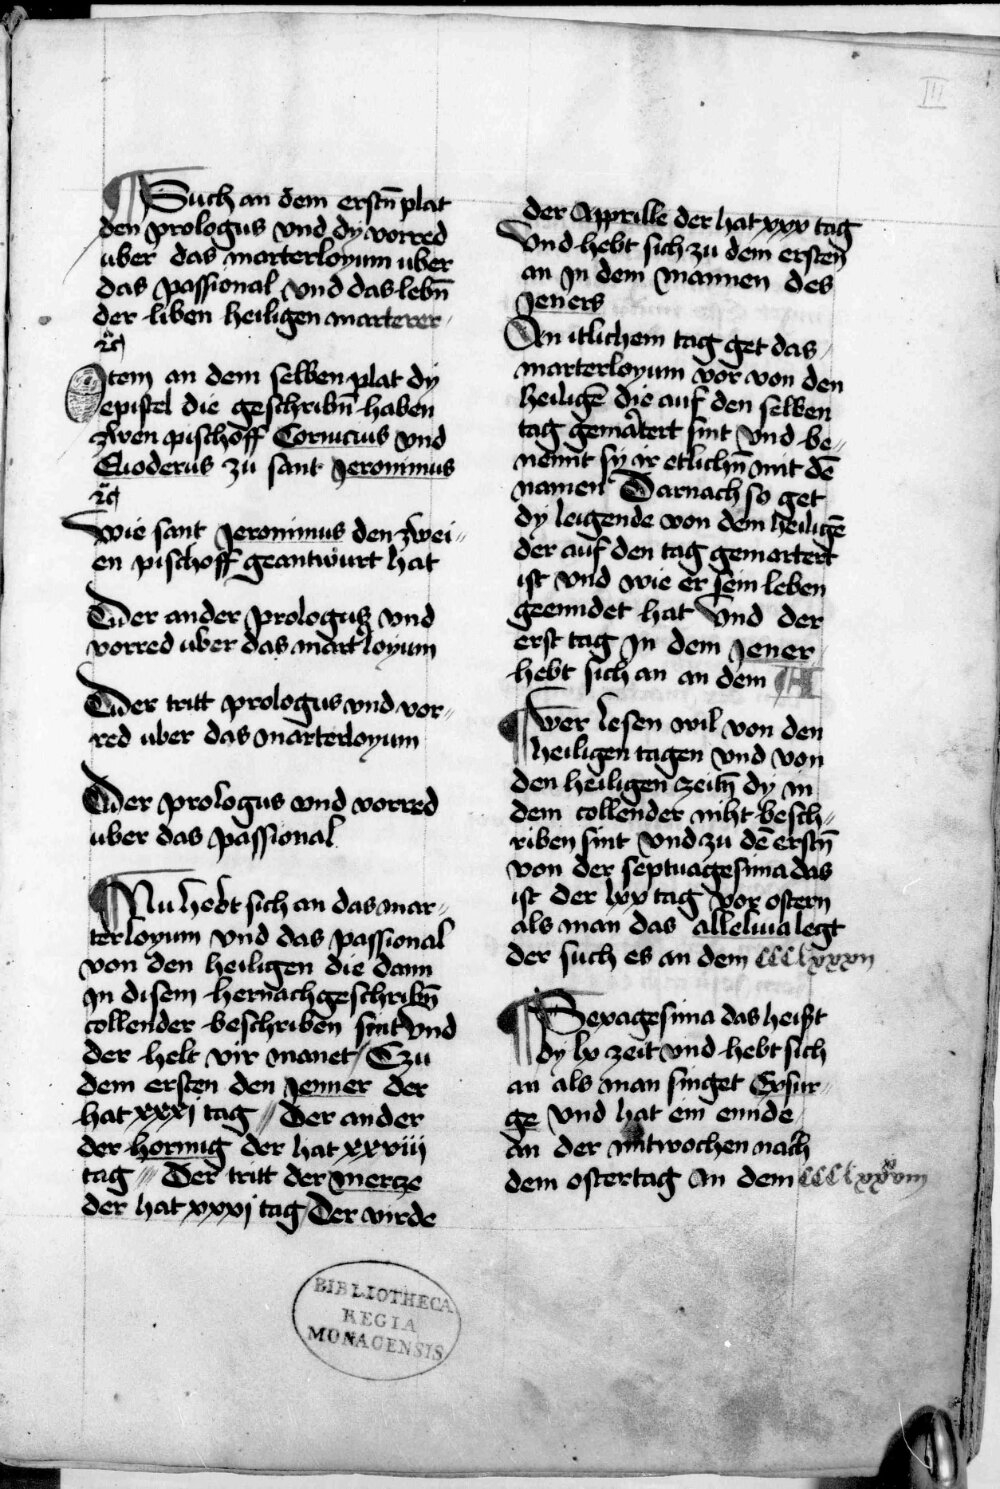 III
Such an dem erstn̄ plat
den prologus vnd dy vorred
uber das marterloyum uber
das passional vnd das lebn̄
der liben heiligen marterer
ꝛc̄
Item an dem selben plat dy
epistel die geschribn̄ haben
zwen pischoff Cornicius vnd
Euoderus zu sant Jeronimus
ꝛc̄
Wie sant Jeronimus den zwei=
en pischoff geantwurt hat
Der ander prologus vnd
vorred uber das martloyum
Der tritt prologus vnd vor=
red uber das marterloyum
Der prologus vnd vorred
uber das passional
Nu hebt sich an das mar=
terloyum vnd das passional
von den heiligen die dann
In disem hernachgeschribn̄
collender beschriben sint vnd
der helt vir manet / Czu
dem ersten den Jenner der
hat xxxj tag // Der ander
der hornug der hat xxviii
tag /// Der tritt der mercze
der hat xxxj tag / Der virde
der Apprille der hat xxx tag
Vnd hebt sich zu dem ersten
an In dem mannen des
Jeners
An itlichem tag get das
marterloyum vor von den
heiligē die auf den selben
tag gemartert sint vnd be=
nennt sy ir etlichn̄ mit dē
namen Darnach so get
dy leigende von dem heiligē
der auf den tag gemartert
ist vnd wie er sein leben
geenndet hat Vnd der
erst tag In dem Jener
hebt sich an an dem
Wer lesen wil von den
heiligen tagen vnd von
den heiligen zeitn̄ dy in
dem collender niht besch=
riben sint vnd zu dē erstn̄
von der septuagesima das
ist der lxx tag vor ostern
als man das alleluia legt
der such es an dem cccclxxxii
Sexagesima das heist
dy lx zeit vnd hebt sich
an als man singet Exsur=
ge vnd hat ein ennde
an der mitwochen nach
dem ostertag An dem
BIBLIOTHECA
REGIA
MONACENSIS